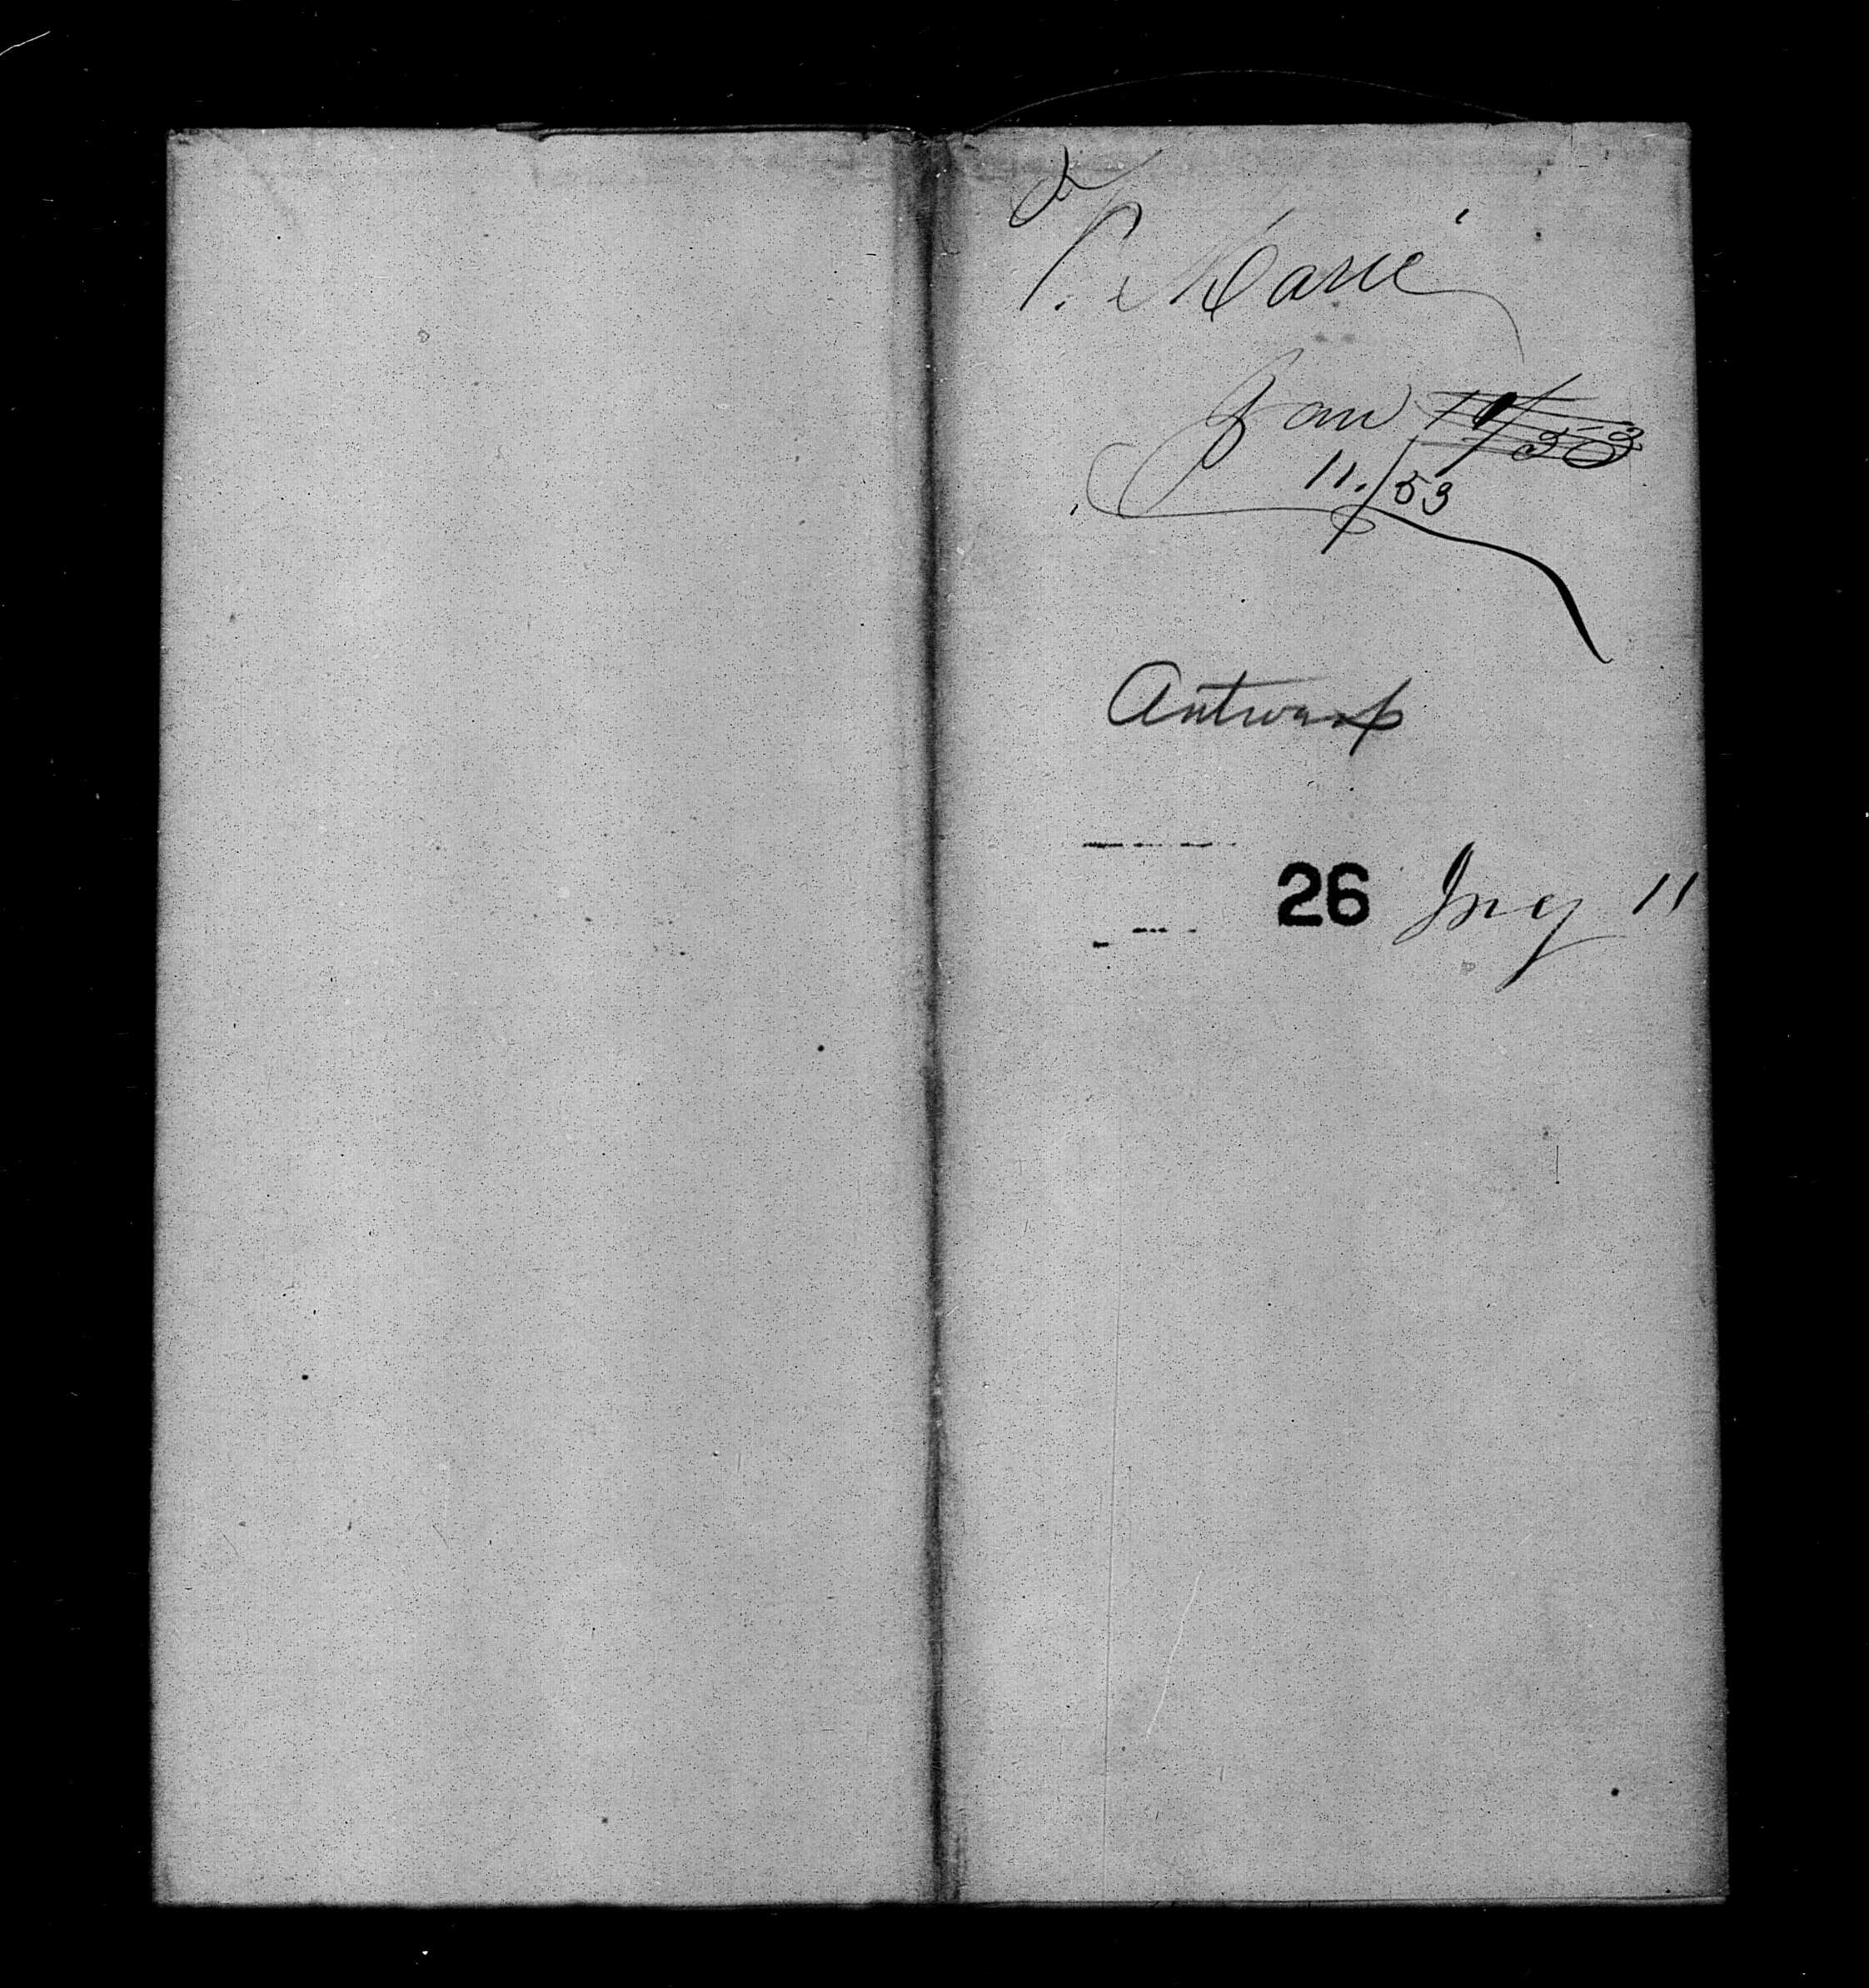 P. Marié
Jan 10/53
11./53
Antwerp
26 Jny 11